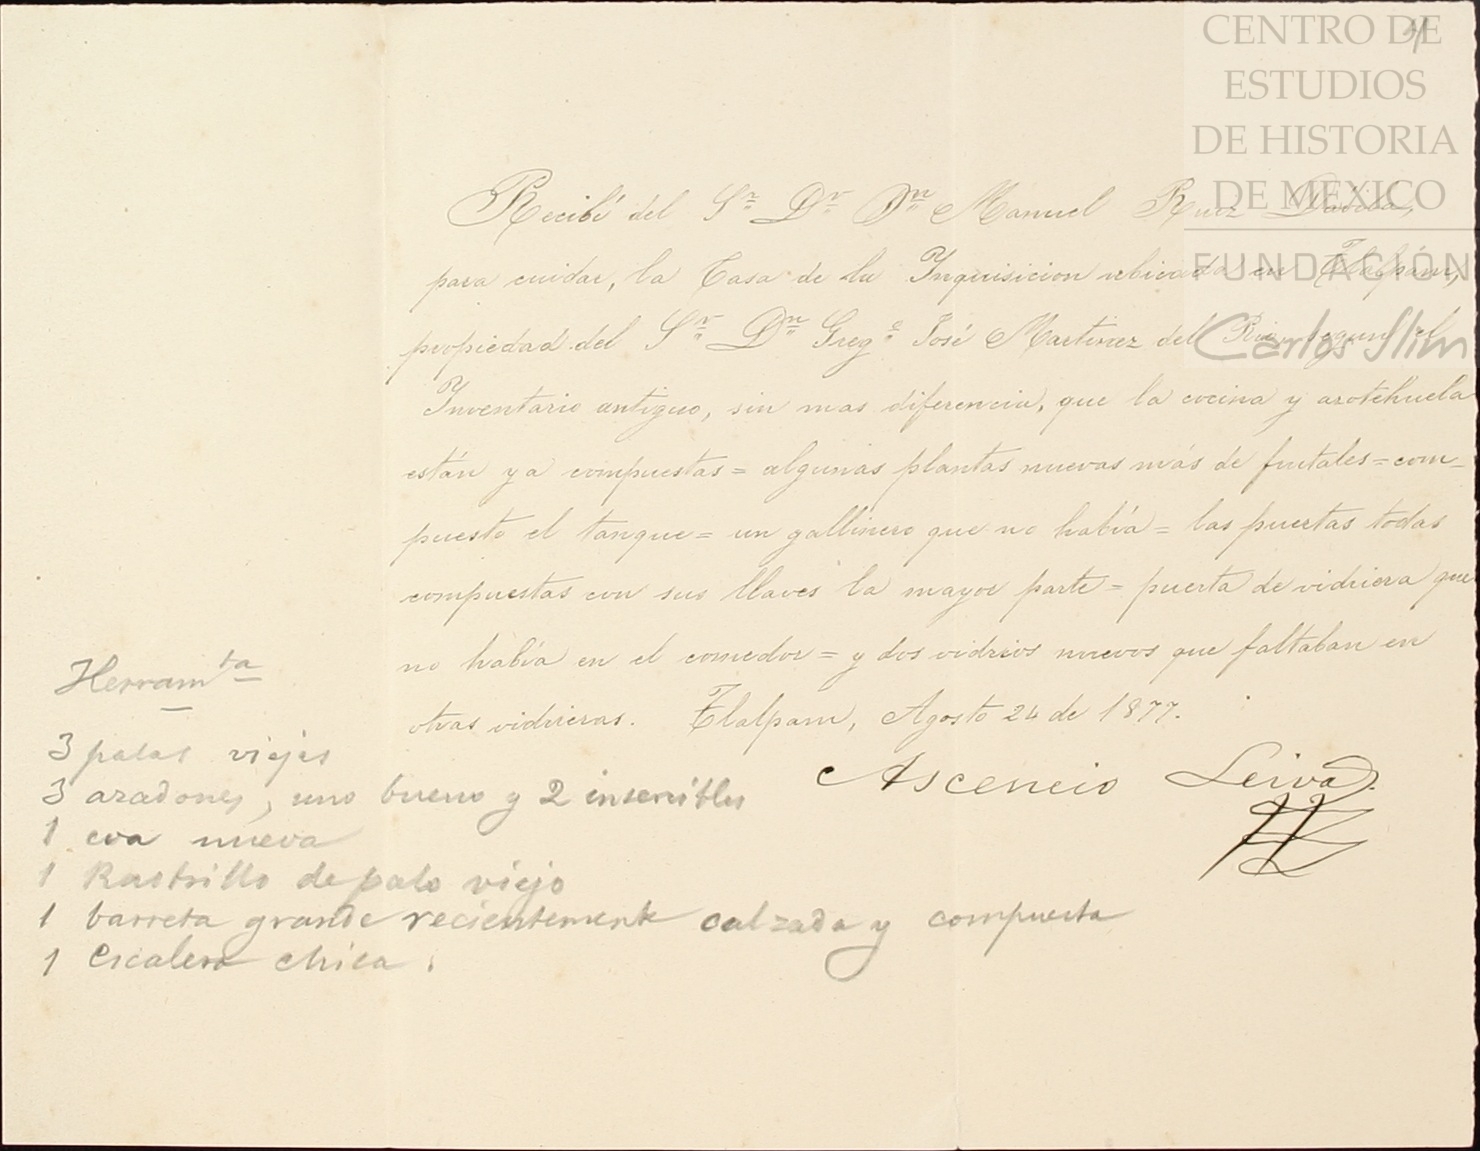 CENTRO DE
ESTUDIOS
DE HISTORIA
DE MÉXICO
FUNDACIÓN
Carlos Slim
Recibí del Sr. Dr. Dn. Manuel Ruiz Dávila,
para cuidar, la Casa de la Inquisicion ubicada en Tlalpam,
propiedad del Sr. Dn. Grego. José Martinez del Rio, segun el
Inventario antiguo, sin mas diferencia, que la cocina y azotehuela
están ya compuestas = algunas plantas nuevas más de frutales = com-
puesto el tanque = un gallinero que no había = las puertas todas
compuestas con sus llaves la mayor parte = puerta de vidriera que
no había en el comedor = y dos vidrios nuevos que faltaban en
otras vidrieras. Tlalpam, Agosto 24 de 1877.
Ascencio Leiva
Herramta
3 palas viejas
3 azadones, uno bueno y 2 inservibles
1 coa nueva
1 Rastrillo de palo viejo
1 barreta grande recientemente calzada y compuesta
1 Escalera chica.